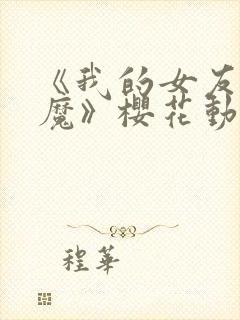 《我的女友
魔》櫻花動
程華